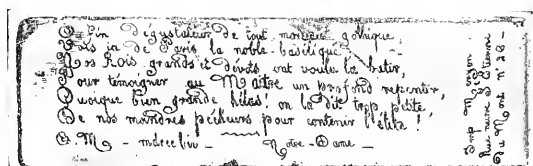 O Fin Dégustateur de tout morceau gothique,
Vois in de Paris la noble basilique.
Nos Rois grands et Dévots ont voulu la batir,
Pour témoigner au Maître un profond repentir,
Quoique bien grande hélas! on la dit trop petite,
De nos moindres pécheurs pour contenir l'élite!
mdcccliv _ Notre-Dame _